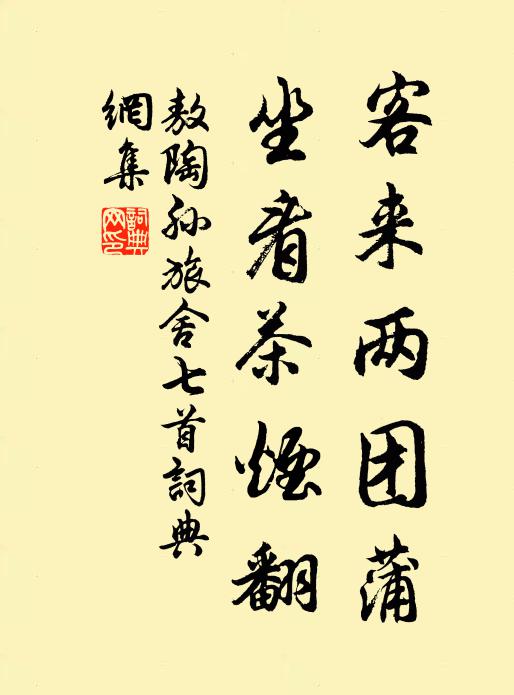 客来两团蒲
坐看茶煙翻
敖陶孙旅舍七首詞典
網集
詞典网印